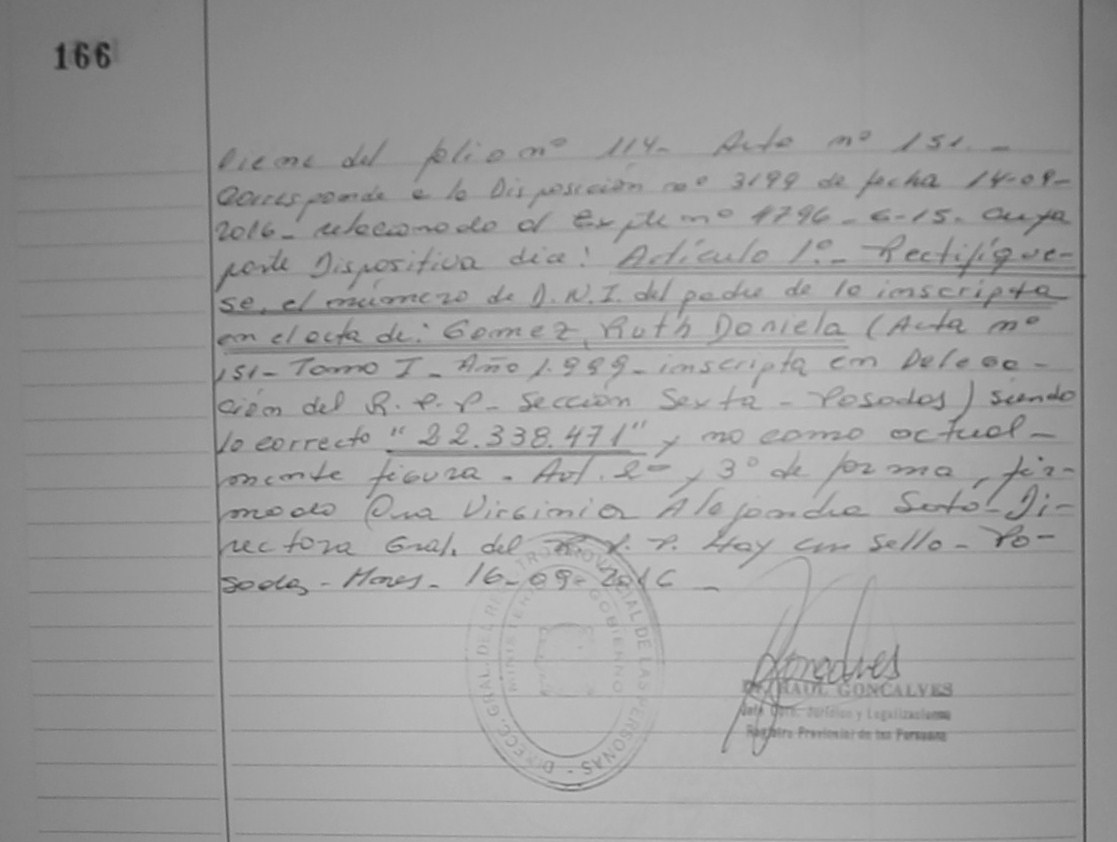 166
Viene del folio nº 114- Acta nº 151. -
Corresponde a la Disposición nº 3199 de fecha 14-09-
2016- relacionado al Expte nº 4796-6-15- cuya
parte Dispositiva dice: Artículo 1º- Rectifíque-
se, el número de D.N.I. del padre de la inscripta
en el acta de: Gomez, Ruth Daniela (Acta nº
151- Tomo I - Año 1.999- inscripta en Delega-
ción del R.P.P- Sección Sexta - Posadas) siendo
lo correcto "22.338.471" y no como actual-
mente figura. Art. 2º y 3º de forma, fir-
mado Dra Virginia Alejandra Di-
rectora Gral. del R.P.P. Hay un sello - Po-
sadas - Mnes - 16-09-2016 -
DIRECC. GRAL. DEL REGISTRO PROVINCIAL DE LAS PERSONAS -
MINISTERIO GOBIERNO
Goncalves
Dr. RAUL GONCALVES
Jefe Jurídico y Legalizaciones
Registro Provincial de las Personas